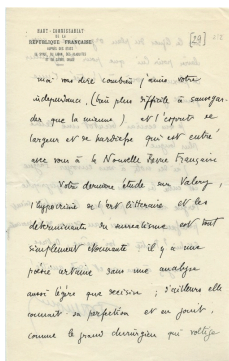 HAUT-COMMISSARIAT
DE LA
RÉPUBLIQUE FRANÇAISE
[29]
moi vous dire combien j'aime votre
indépendance, (bien plus difficile à sauvegar-
der que la mienne) et l'esprit de
largeur et de hardiesse qui est entré
avec vous à la Nouvelle Revue Française
Votre dernière étude sur Valéry,
l'hypocrisie de l'art littéraire et les
déterminants du surréalisme est tout
simplement étonnante il y a une
poésie certaine dans une analyse
aussi légère que décisive ; d'ailleurs elle
connait sa perfection et en jouit,
comme le grand chirurgien qui voltige